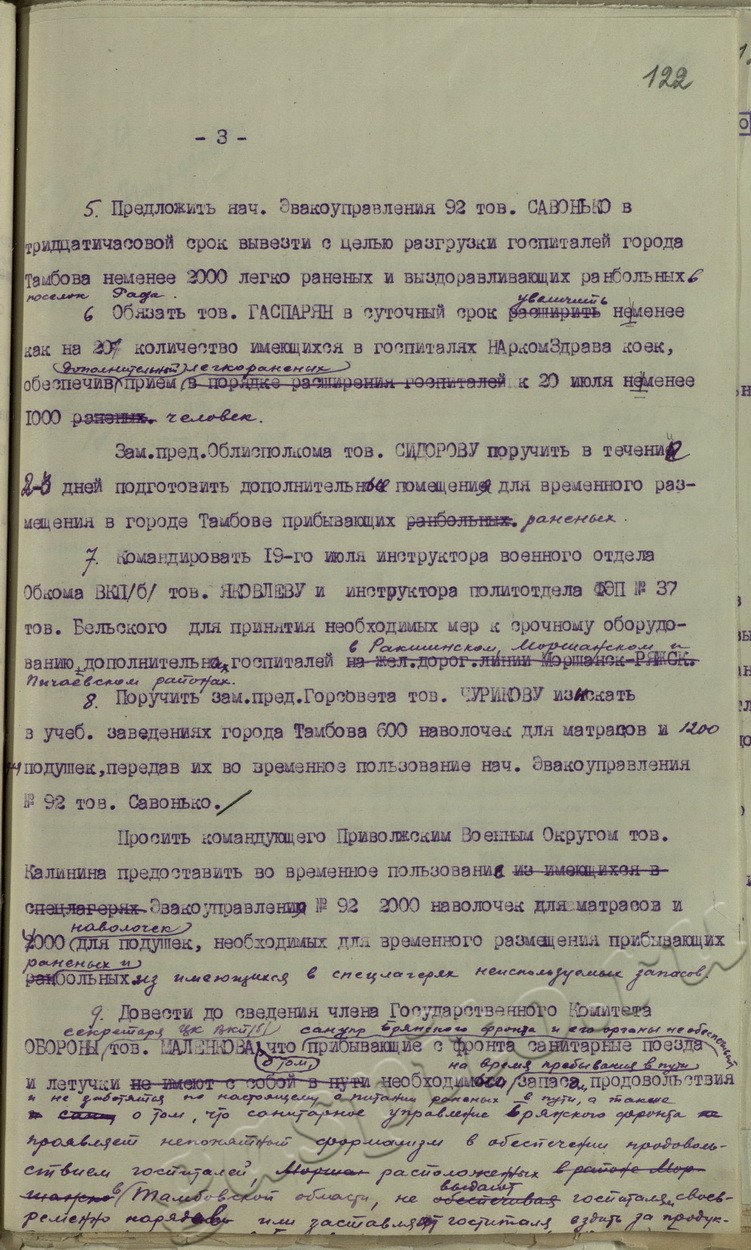 122
- 3 -
5. Предложить нач. Эвакоуправления 92 тов. САВОНЬКО в
тридцатичасовой срок вывезти с целью разгрузки госпиталей города
Тамбова неменее 2000 легко раненых и выздоравливающих ранбольных в
поселок Рада.
увеличить
6 Обязать тов. ГАСПАРЯН в суточный срок расширить неменее
как на 20% количество имеющихся в госпиталях НАркомЗдрава коек,
дополнительный легкораненых
обеспечив прием в порядке расширения госпиталей к 20 июля неменее
1000 раненых. человек.
Зам.пред.Облисполкома тов. СИДОРОВУ поручить в течении
2-3 дней подготовить дополнительные помещения для временного раз-
мещения в городе Тамбове прибывающих ранбольных. раненых.
7. Командировать 19-го июля инструктора военного отдела
Обкома ВКП/б/ тов. ЯКОВЛЕВУ и инструктора политотдела ФЭП № 37
тов. Бельского для принятия необходимых мер к срочному оборудо-
в Ракшинском, Моршанском и
ванию дополнительных госпиталей на жел.дорог.линии Моршанск-РЯЖСК.
Пичаевском районах.
8. Поручить зам.пред.Горсовета тов. ЧУРИКОВУ изыскать
в учеб. заведениях города Тамбова 600 наволочек для матрацов и 1200
подушек,передав их во временное пользование нач. Эвакоуправления
№ 92 тов. Савонько.
Просить командующего Приволжским Военным Округом тов.
Калинина предоставить во временное пользование из имеющихся в
спецлагерях Эвакоуправлению № 92 2000 наволочек для матрасов и
наволочек
4000 для подушек, необходимых для временного размещения прибывающих
раненых и
ранбольных из имеющихся в спецлагерях неиспользуемых запасов.
9. Довести до сведения члена Государственного Комитета
секретаря ЦК ВКП(б) санупр Брянского фронта и его органы не обеспечивают
ОБОРОНЫ тов. МАЛЕНКОВА, что прибывающие с фронта санитарные поезда
о том, на время пребывания в пути
и летучки не имеют с собой в пути необходимого запаса продовольствия
и не заботятся по настоящему о питании раненых в пути, а также
о том, что санитарное управление Брянского фронта
проявляет непонятный формализм в обеспечении продоволь-
ствием госпиталей, Моршан расположенных в районе Мор-
шанска в Тамбовской области, не обеспечивая выдают госпиталям свое-
временно нарядов или заставляют госпиталя ездить за продук-
yaspito.ru